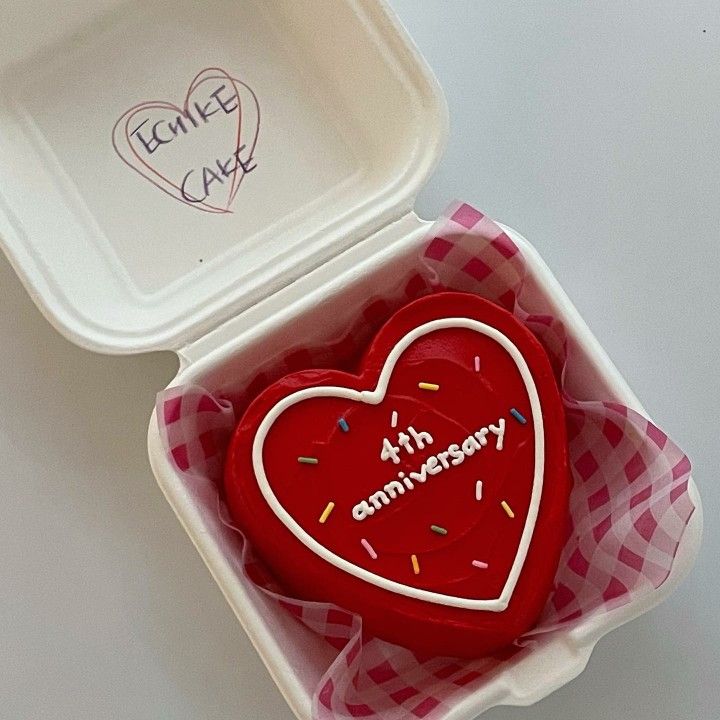 ECHIKE
CAKE
4th
anniversary